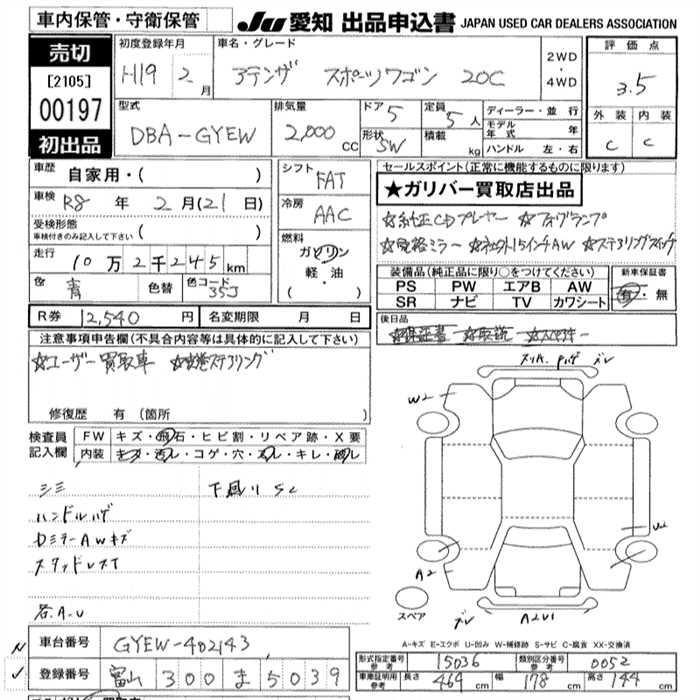 車内保管・守衛保管
JU 愛知 出品申込書 JAPAN USED CAR DEALERS ASSOCIATION
売切
[2105]
00197
初出品
初度登録年月
H19 2月
車名・グレード
アテンザ スポーツワゴン 20C
2WD
・
4WD
評価点
3.5
外装 内装
C C
型式
DBA-GYEW
排気量
2,000cc
ドア 5
形状 SW
定員 5人
積載 kg
ディーラー・並行
モデル年式 年
ハンドル 左・右
車歴 自家用・( )
車検 R8年 2月(21日)
受検形態
車検付きのみ記入して下さい ( )
走行 10万2千245km
色 青 色替 色コード 35J
シフト FAT
冷房 AAC
燃料
ガソリン
軽・油
( )
セールスポイント(正常に機能するものに限ります)
★ガリバー買取店出品
☆純正CDプレヤー ☆フォグランプ
☆電格ミラー ☆社外15インチAW ☆ステアリングスイッチ
装備品(純正品に限り○をつけてください)
PS PW エアB AW
SR ナビ TV カワシート
新車保証書
有・無
R券 12,540円
名変期限 月 日
後日品
☆保証書 ☆取説
注意事項申告欄(不具合内容等は具体的に記入して下さい)
☆ユーザー買取車 ☆革巻ステアリング
修復歴 有(箇所 )
検査員記入欄
FW キズ・飛石・ヒビ割・リペア跡・X要
内装 キズ・汚レ・コゲ・穴・スレ・キレ・破レ
シミ 下廻りSC
ハンドルハゲ
DミラーAWキズ
スタッドレスT
各A.U
W2
U2
A2
A2U1
スペア
A-キズ E-エクボ U-凹み W-補修跡 S-サビ C-腐食 XX-交換済
車台番号 GYEW-402143
登録番号 富山 300 ま 5039
形式指定番号参考 15036
類別区分番号参考 0052
車庫証明用参考
長さ 464cm 幅 178cm 高さ 144cm